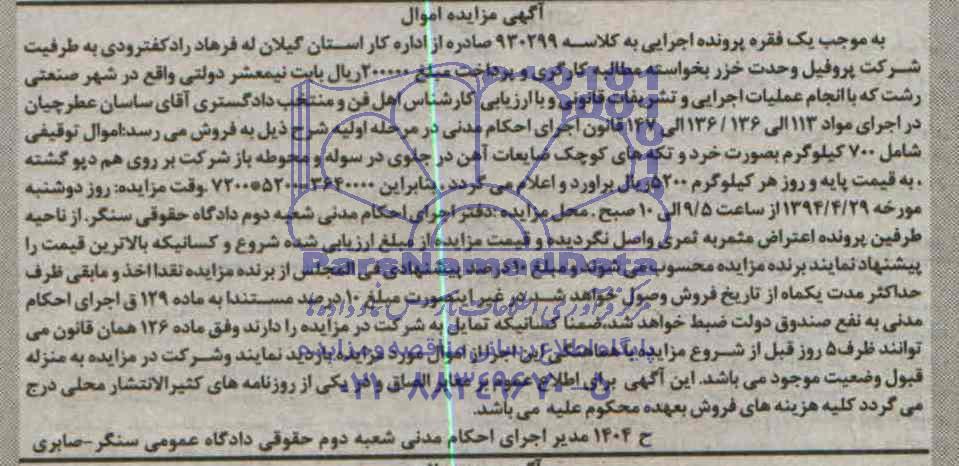 آگهی مزایده اموال
به موجب یک فقره پرونده اجرایی به کلاسه ۹۳۰۲۹۹ صادره از اداره کار استان گیلان له فرهاد رادکفترودی به طرفیت
شرکت پروفیل وحدت خزر بخواسته مطالبه کارگری و پرداخت مبلغ ۲۰۰۰۰۰ریال بابت نیمعشر دولتی واقع در شهر صنعتی
رشت که با انجام عملیات اجرایی و تشریفات قانونی و با ارزیابی کارشناس اهل فن و منتخب دادگستری آقای ساسان عطرچیان
در اجرای مواد ۱۱۳الی ۱۳۶ / ۱۳۶الی ۱۴۷ قانون اجرای احکام مدنی در مرحله اولیه شرح ذیل به فروش می رسد:اموال توقیفی
شامل ۷۰۰ کیلوگرم بصورت خرد و تکه های کوچک ضایعات آهن در جلوی در سوله و محوطه باز شرکت بر روی هم دپو گشته
، به قیمت پایه و روز هر کیلوگرم ۵۲۰۰ریال براورد و اعلام می گردد . بنابراین ۳۶۴۰۰۰۰=۵۲۰۰*۷۲۰۰ .وقت مزایده: روز دوشنبه
مورخه ۱۳۹۴/۴/۲۹ از ساعت ۹/۵ الی ۱۰ صبح . محل مزایده :دفتر اجرای احکام مدنی شعبه دوم دادگاه حقوقی سنگر. از ناحیه
طرفین پرونده اعتراض مثمربه ثمری واصل نگردیده و قیمت مزایده از مبلغ ارزیابی شده شروع و کسانیکه بالاترین قیمت را
پیشنهاد نمایند برنده مزایده محسوب می شوند و مبلغ ۱۰درصد پیشنهادی فی المجلس از برنده مزایده نقدا اخذ و مابقی ظرف
حداکثر مدت یکماه از تاریخ فروش وصول خواهد شد.در غیر اینصورت مبلغ ۱۰درصد مستندا به ماده ۱۲۹ ق اجرای احکام
مدنی به نفع صندوق دولت ضبط خواهد شد.ضمنا کسانیکه تمایل به شرکت در مزایده را دارند وفق ماده ۱۲۶ همان قانون می
توانند ظرف۵ روز قبل از شروع مزایده با هماهنگی این اجرا از اموال مورد مزایده بازدید نمایند وشرکت در مزایده به منزله
قبول وضعیت موجود می باشد. این آگهی برای اطلاع عموم بر معابر الصاق و در یکی از روزنامه های کثیرالانتشار محلی درج
می گردد کلیه هزینه های فروش بعهده محکوم علیه می باشد.
ح ۱۴۰۴ مدیر اجرای احکام مدنی شعبه دوم حقوقی دادگاه عمومی سنگر-صابری
ParsNamadData
۰۲۱-۸۸۳۴۹۶۷۰-۵